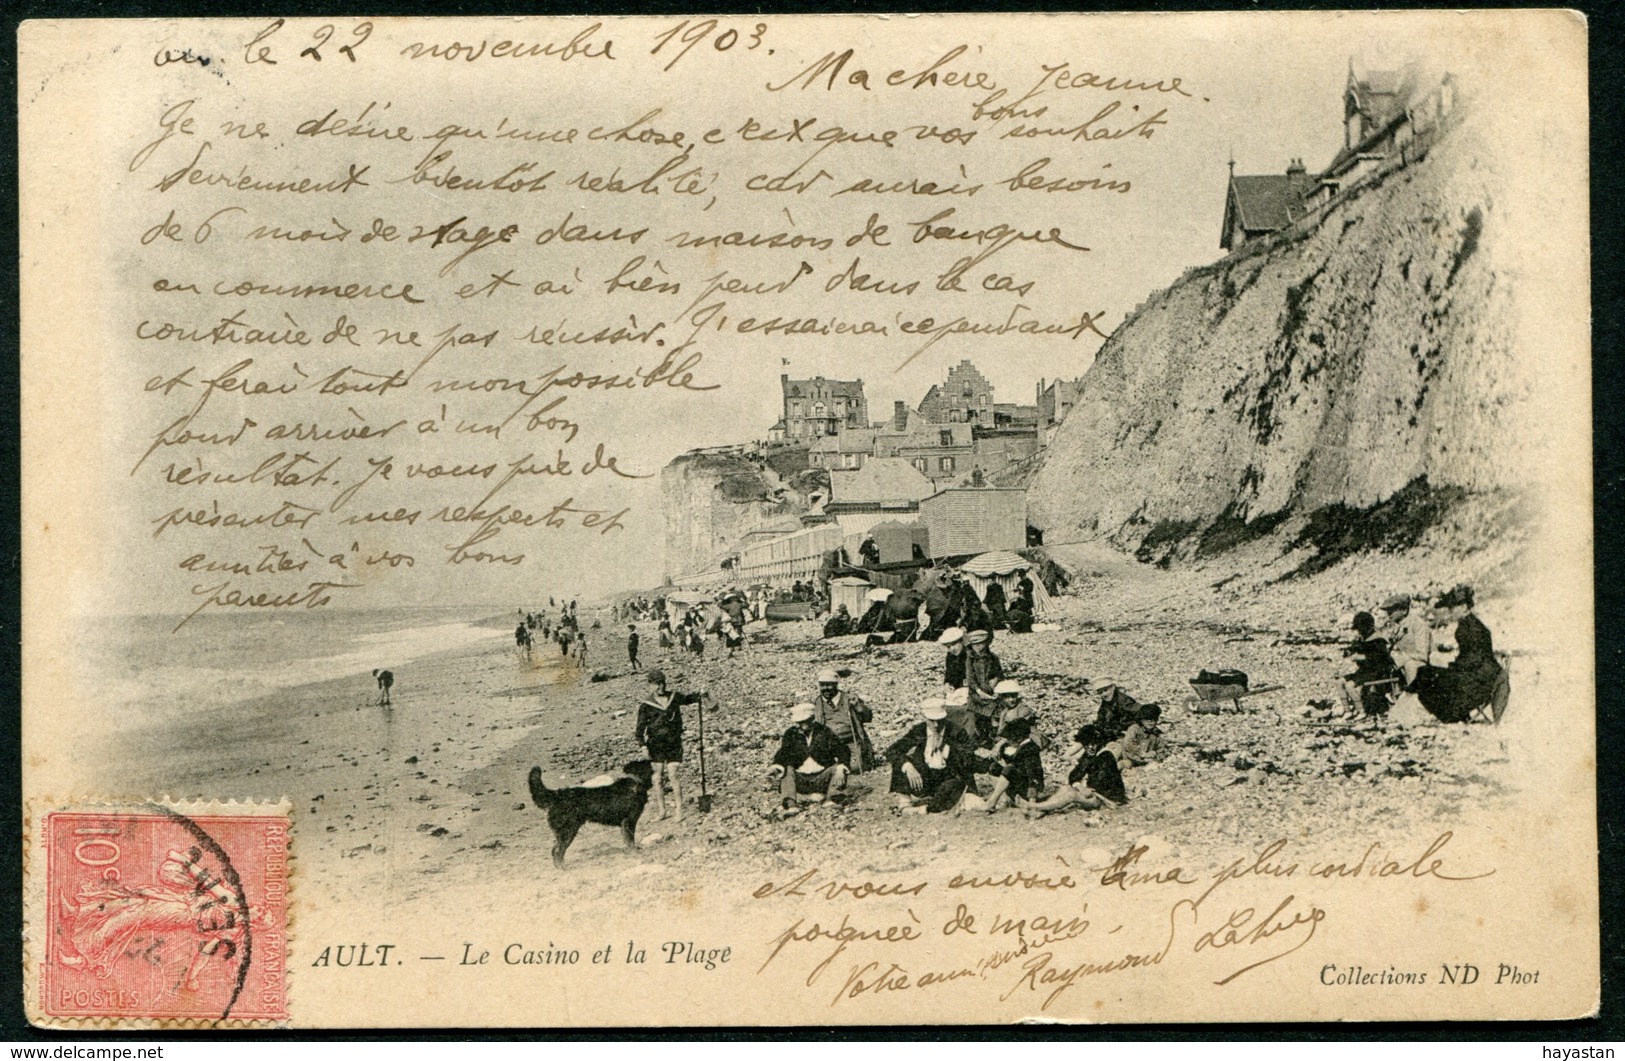 le 22 novembre 1903.
Ma chère Jeanne.
Je ne désire qu'une chose, c'est que vos bons souhaits
deviennent bientôt réalité, car aurais besoin
de 6 mois de stage dans maison de banque
ou commerce et ai bien peur dans le cas
contraire de ne pas réussir. J'essaierai cependant
et ferai tout mon possible
pour arriver à un bon
résultat. Je vous prie de
présenter mes respects et
amitiés à vos bons
parents
et vous envoie ma plus cordiale
poignée de main.
Votre ami sincère Raymond
REPUBLIQUE FRANÇAISE
10c
POSTES
SEINE
AULT. — Le Casino et la Plage
Collections ND Phot
delcampe.net
hayastan